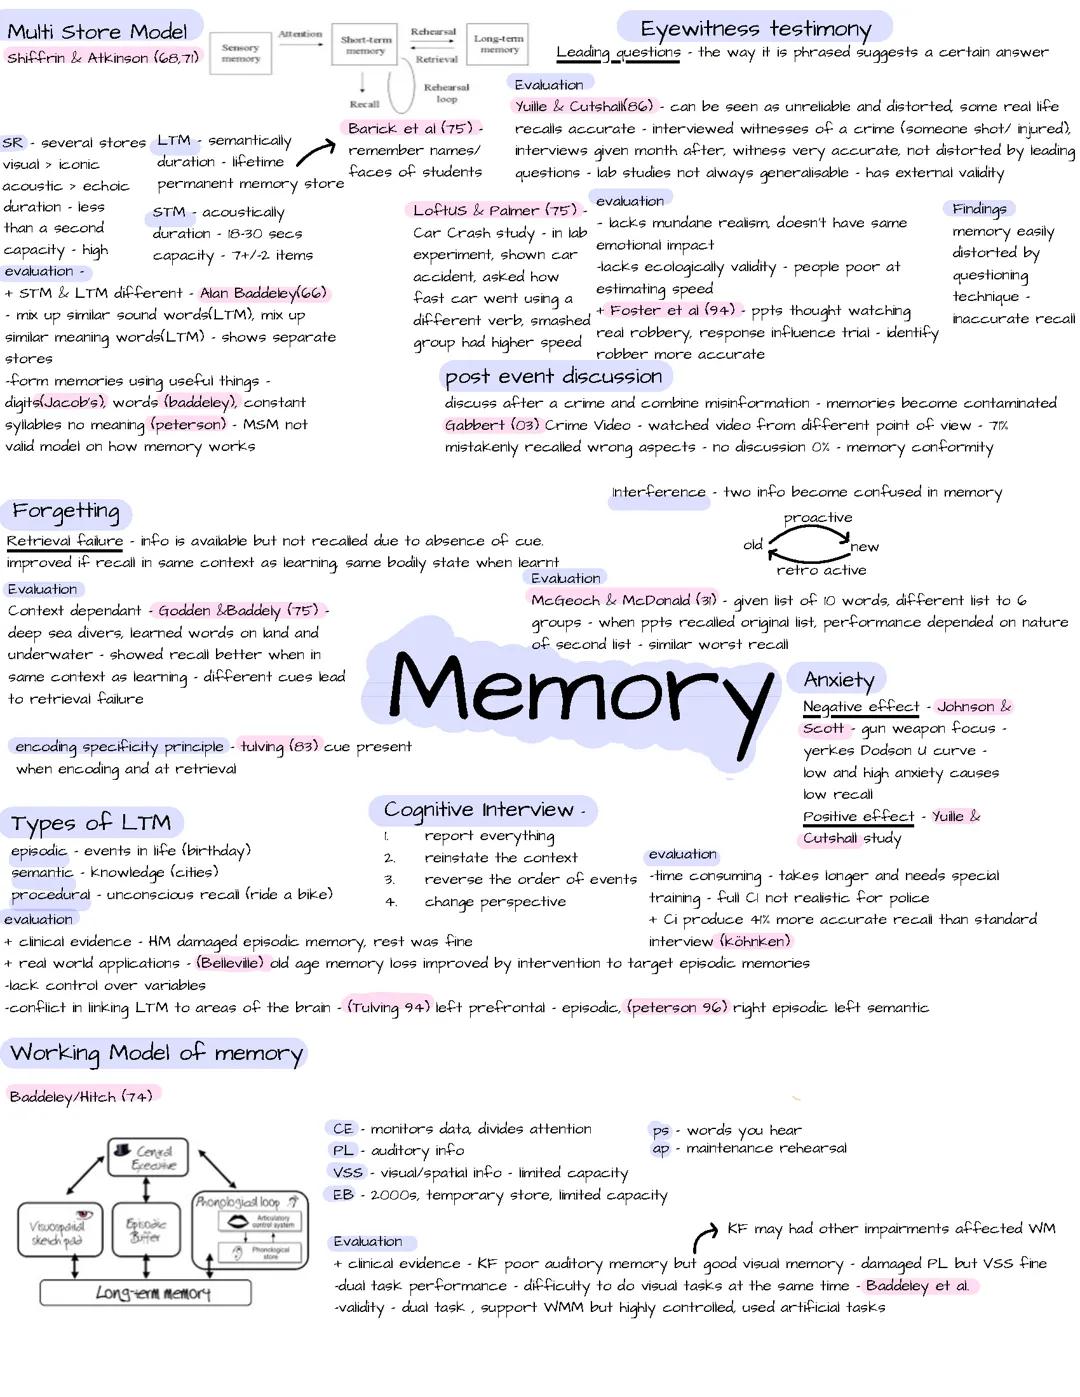 Multi Store Model
Shiffrin & Atkinson (68,71)
Sensory memory
Attention
Short-term memory
Rehearsal
Retrieval
Long-term memory
Recall
Rehearsal loop
SR - several stores
visual > iconic
acoustic > echoic
duration - less
than a second
capacity - high
LTM - semantically
duration - lifetime
permanent memory store
Barick et al (75) -
remember names/
faces of students
STM - acoustically
duration - 18-30 secs
capacity - 7+/-2 items
evaluation -
+ STM & LTM different - Alan Baddeley(66)
- mix up similar sound words(LTM), mix up
similar meaning words(LTM) - shows separate
stores
-form memories using useful things -
digits(Jacob's), words (baddeley), constant
syllables no meaning (peterson) - MSM not
valid model on how memory works
Eyewitness testimony
Leading questions - the way it is phrased suggests a certain answer
Evaluation
Yuille & Cutshall(86) - can be seen as unreliable and distorted, some real life
recalls accurate - interviewed witnesses of a crime (someone shot/ injured),
interviews given month after, witness very accurate, not distorted by leading
questions - lab studies not always generalisable - has external validity
LoftUS & Palmer (75) -
Car Crash study - in lab
experiment, shown car
accident, asked how
fast car went using a
different verb, smashed
group had higher speed
evaluation
- lacks mundane realism, doesn't have same
emotional impact
-lacks ecologically validity - people poor at
estimating speed
+ Foster et al (94) - ppts thought watching
real robbery, response influence trial - identify
robber more accurate
Findings
memory easily
distorted by
questioning
technique -
inaccurate recall
post event discussion
discuss after a crime and combine misinformation - memories become contaminated
Gabbert (03) Crime Video - watched video from different point of view - 71%
mistakenly recalled wrong aspects - no discussion 0% - memory conformity
Forgetting
Retrieval failure - info is available but not recalled due to absence of cue.
improved if recall in same context as learning, same bodily state when learnt
Evaluation
Context dependant - Godden &Baddely (75) -
deep sea divers, learned words on land and
underwater - showed recall better when in
same context as learning - different cues lead
to retrieval failure
encoding specificity principle - tulving (83) cue present
when encoding and at retrieval
Interference - two info become confused in memory
proactive
old
new
retro active
Evaluation
McGeoch & McDonald (31) - given list of 10 words, different list to 6
groups - when ppts recalled original list, performance depended on nature
of second list - similar worst recall
Memory
Anxiety
Negative effect - Johnson &
Scott - gun weapon focus -
yerkes Dodson U curve -
low and high anxiety causes
low recall
Positive effect - Yuille &
Cutshall study
Types of LTM
episodic - events in life (birthday)
semantic - knowledge (cities)
procedural - unconscious recall (ride a bike)
evaluation
+ clinical evidence - HM damaged episodic memory, rest was fine
+ real world applications - (Belleville) old age memory loss improved by intervention to target episodic memories
-lack control over variables
-conflict in linking LTM to areas of the brain - (Tulving 94) left prefrontal - episodic, (peterson 96) right episodic left semantic
Cognitive Interview -
1. report everything
2. reinstate the context
3. reverse the order of events
4. change perspective
evaluation
-time consuming - takes longer and needs special
training - full CI not realistic for police
+ Ci produce 41% more accurate recall than standard
interview (köhnken)
Working Model of memory
Baddeley/Hitch (74)
Central Executive
Visuospatial sketch pad
Episodic Buffer
Phonological loop
Articulatory control system
Phonological store
Long-term memory
CE - monitors data, divides attention
PL - auditory info
VSS - visual/spatial info - limited capacity
EB - 2000s, temporary store, limited capacity
ps - words you hear
ap - maintenance rehearsal
KF may had other impairments affected WM
Evaluation
+ clinical evidence - KF poor auditory memory but good visual memory - damaged PL but VSS fine
-dual task performance - difficulty to do visual tasks at the same time - Baddeley et al.
-validity - dual task , support WMM but highly controlled, used artificial tasks